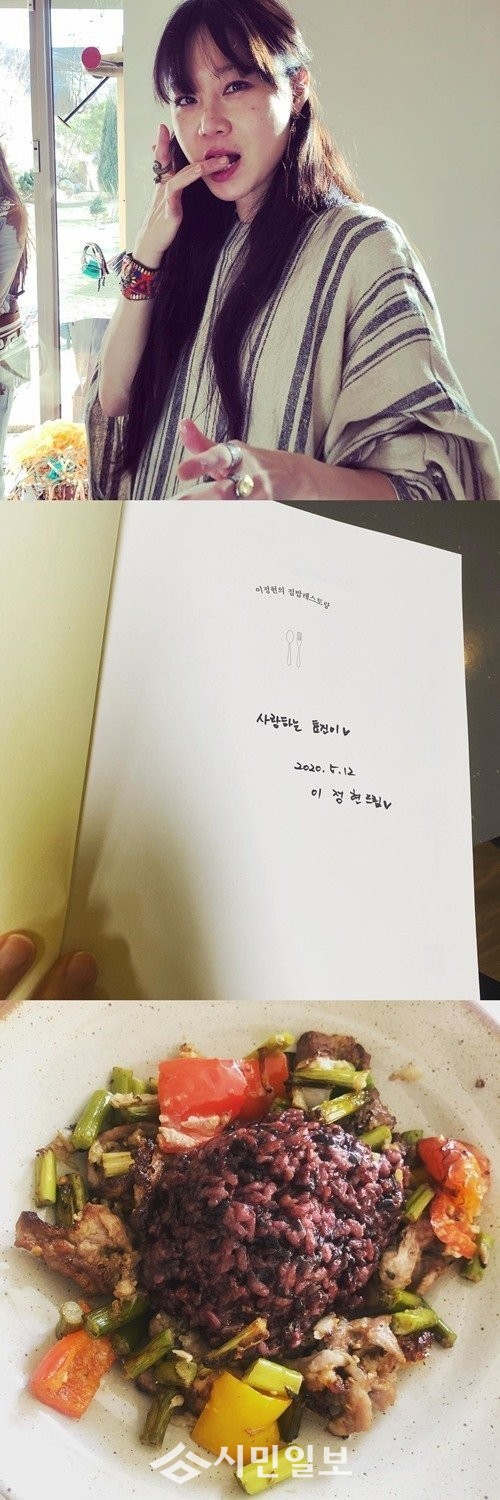 이정현의 집밥레스토랑
사랑하는 효진이♥
2020.5.12
이정현드림♥
시민일보